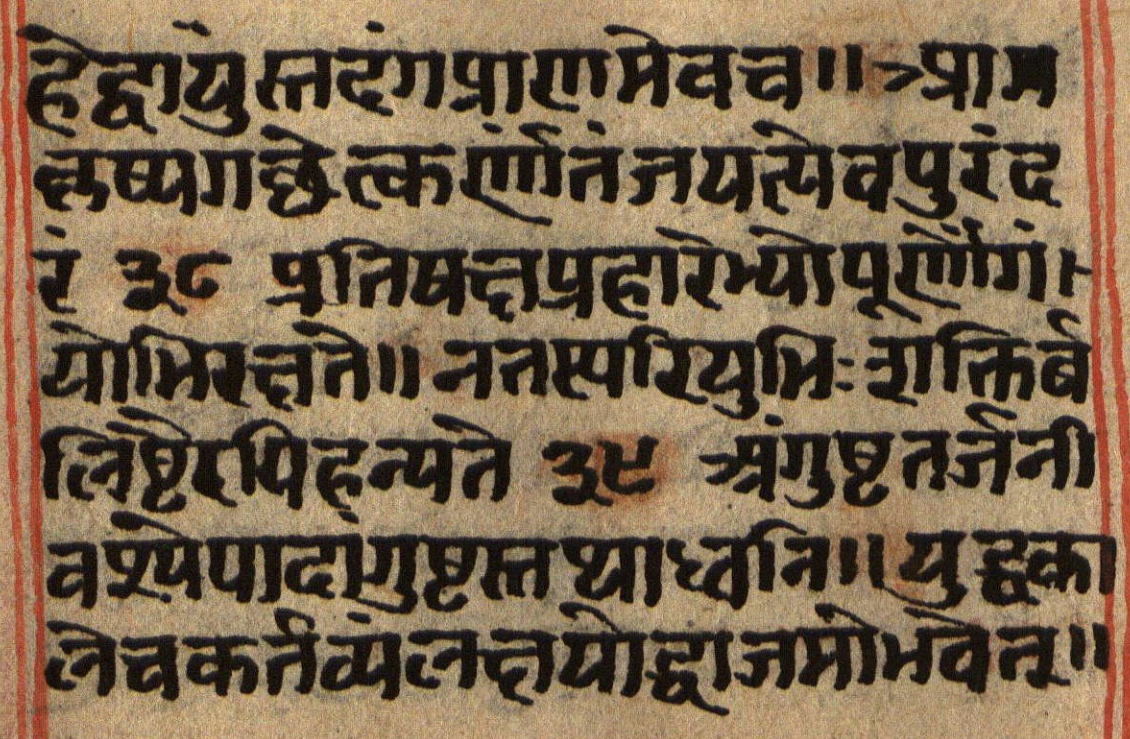 हेद्वायुस्तदंगप्राणमेवच॥ आम
कृष्यगछेत्कर्णांतंजयत्येवपुरंद
रं ३८ प्रतिषक्षप्रहारेभ्योपूर्णांगं।
योभिरक्षते॥ नतस्परियुभिः शक्तिर्ब
लिष्टैरपिहन्यते ३९ अंगुष्टतर्जनी
वश्येपादांगुष्टस्तथाध्वनि॥ युद्धका
लेचकर्तव्यंलक्षयोद्धाजमोभवेत्॥